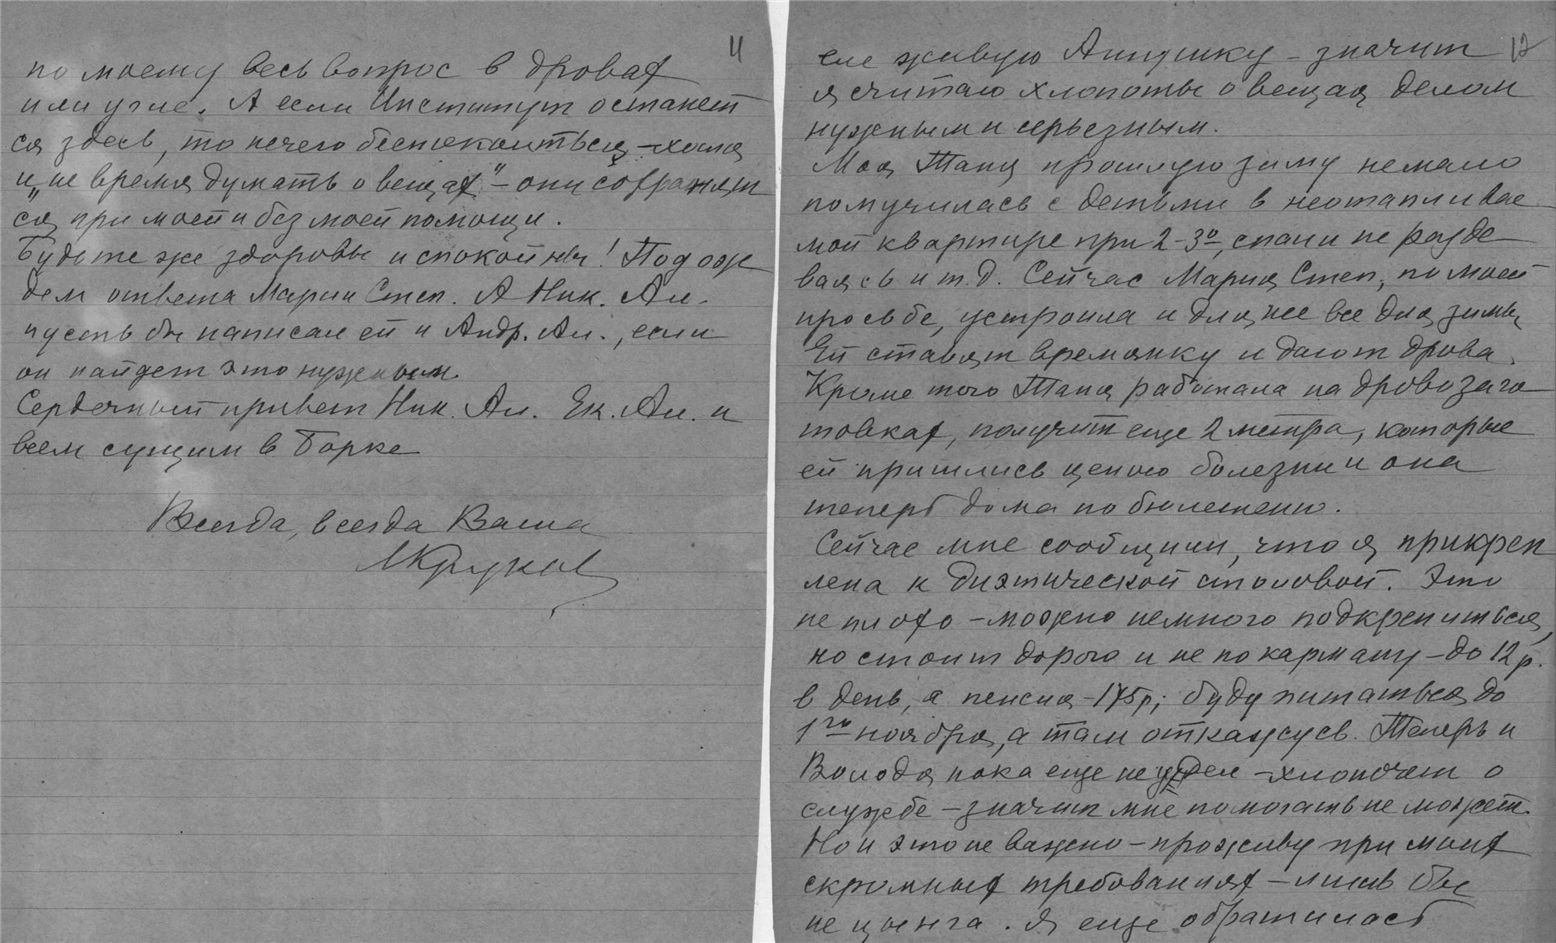 11
по моему весь вопрос в дровах
или угле. А если Институт останет
ся здесь, то нечего беспокоиться – хотя
и „не время думать о вещах" – они сохранят
ся при моей и без моей помощи.
Будьте же здоровы и спокойны! Подож
дем ответа Марии Степ. А Ник. Ал.
пусть бы написал ей и Андр. Ал., если
он найдет это нужным.
Сердечный привет Ник. Ал. Ек. Ал. и
всем сущим в Борке
Всегда, всегда Ваша
МКрукова
12
еле живую Аннушку – значит
я считаю хлопоты о вещах делом
нужным и серьезным.
Моя Таня прошлую зиму немало
помучилась с детьми в неотапливае
мой квартире при 2-3°, спали не разде
ваясь и т.д. Сейчас Мария Степ., по моей
просьбе, устроила и для нее все для зимы
Ей ставят времянку и дают дрова.
Кроме того Таня работала на дровозаго
товках, получит еще 2 метра, которые
ей пришлись ценою болезни и она
теперь дома по бюлетеню.
Сейчас мне сообщили, что я прикреп
лена к диэтической столовой. Это
не плохо – можно немного подкрепиться,
но стоит дорого и не по карману – до 12 р.
в день, а пенсия – 175 р; буду питаться до
1го ноября, а там откажусь. Теперь и
Володя пока еще не у дел – хлопочет о
службе – значит мне помогать не может.
Но и это не важно – проживу при моих
скромных требованиях – лишь бы
не цынга. Я еще обратилась